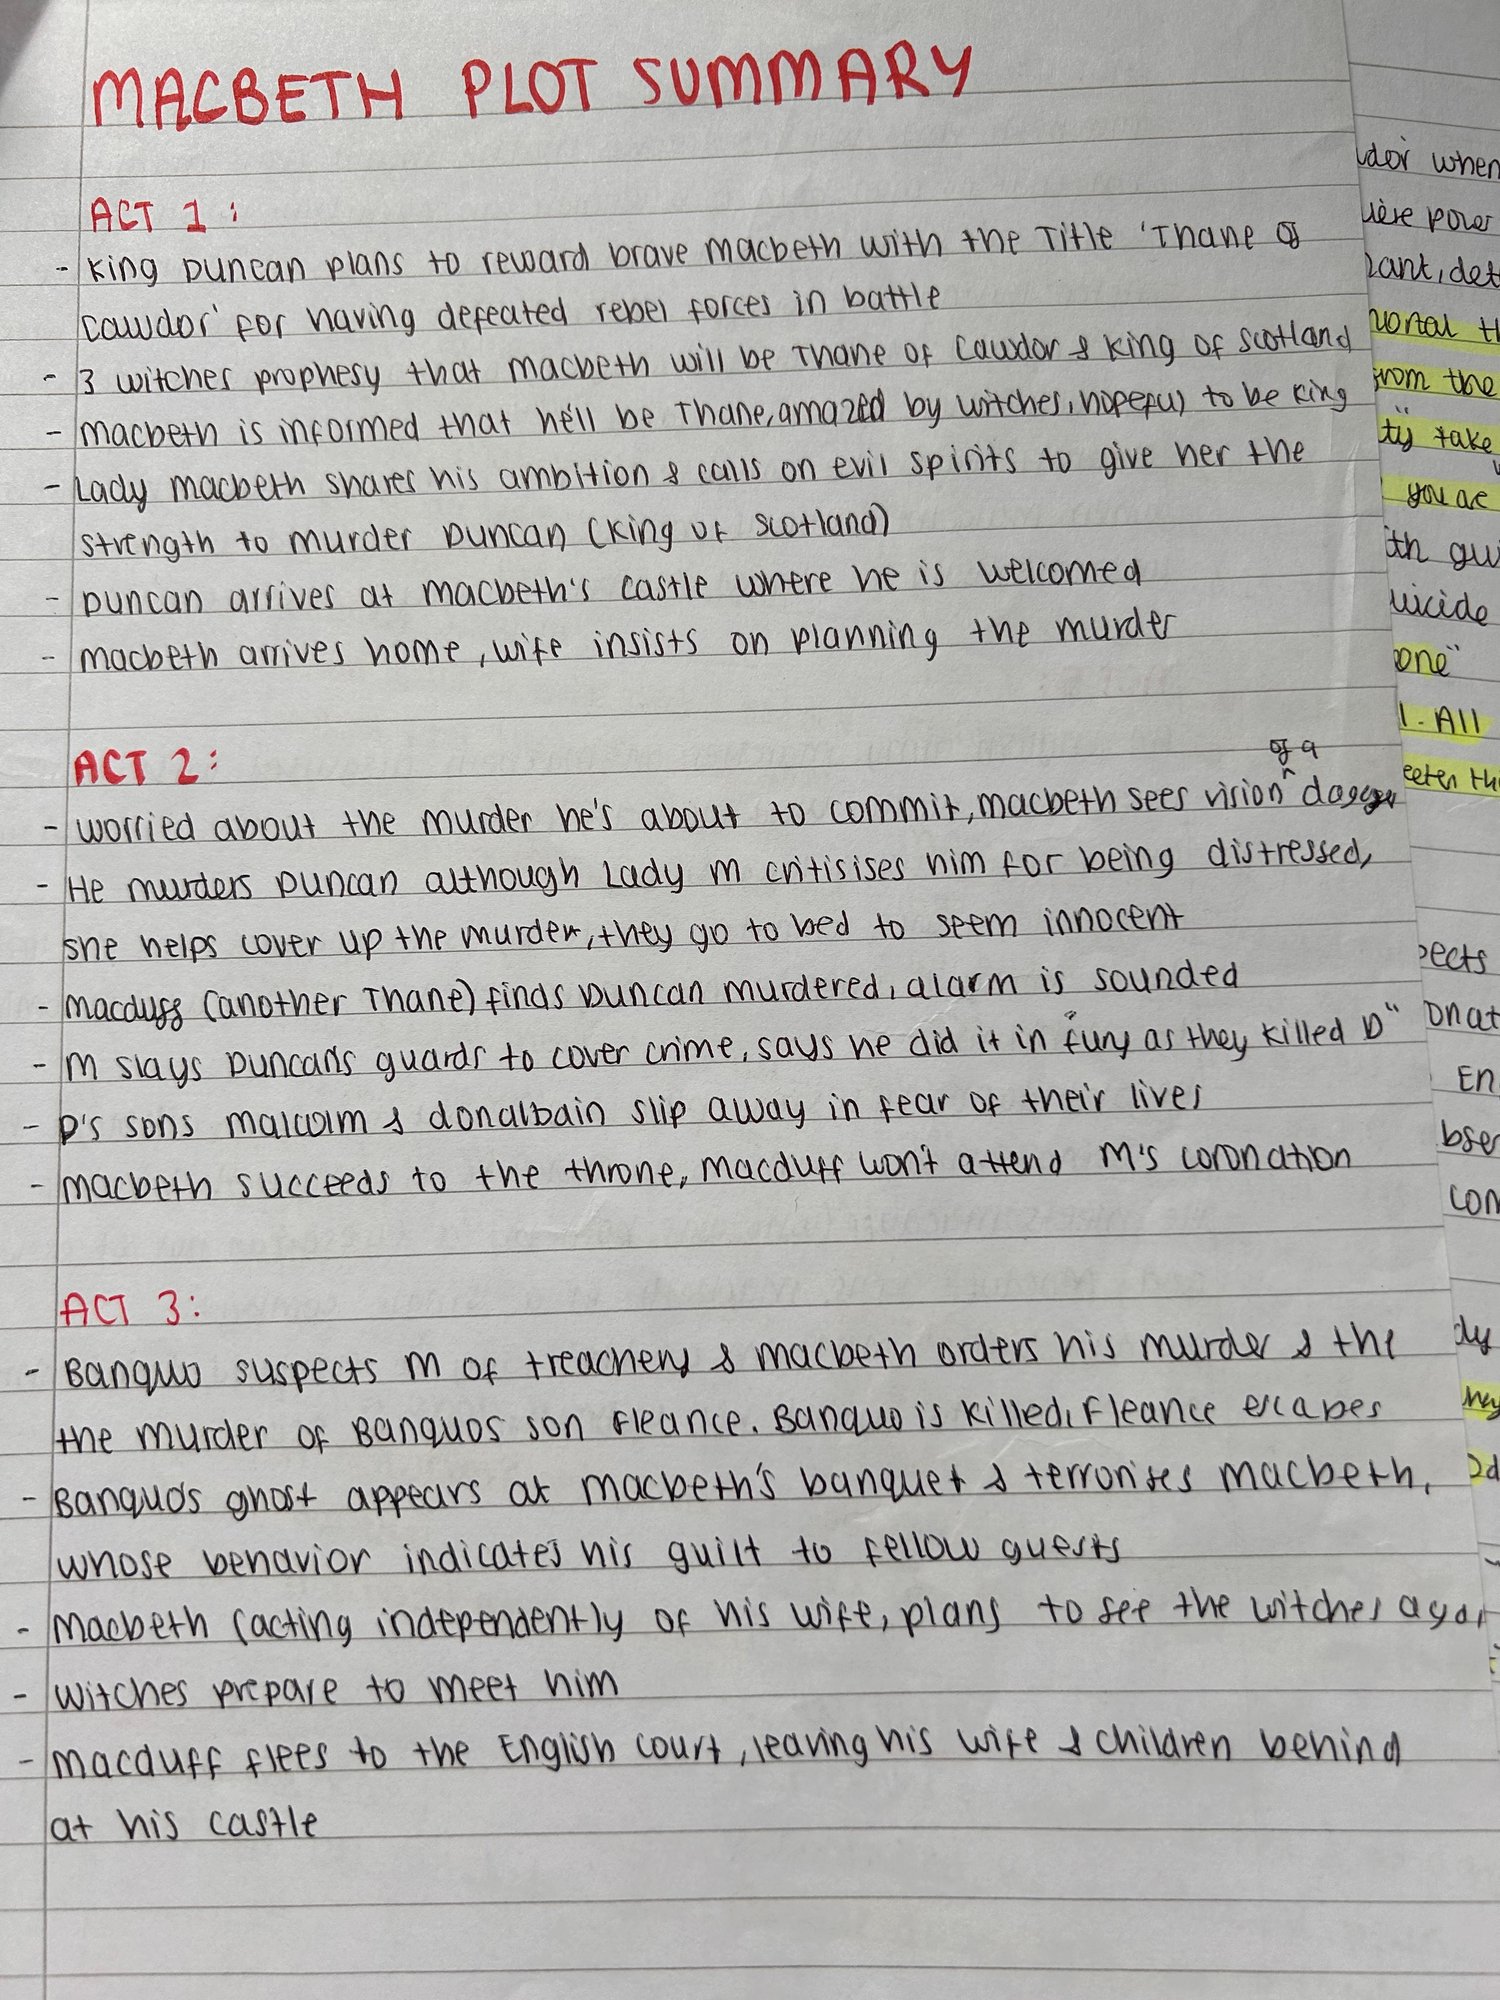 MACBETH PLOT SUMMARY
ACT 1:
- King Duncan plans to reward brave Macbeth with the Title 'Thane of
Cawdor' for having defeated rebel forces in battle
- 3 witches prophesy that Macbeth will be Thane of Cawdor & King of Scotland
- Macbeth is informed that he'll be Thane, amazed by witches, hopeful to be King
- Lady Macbeth shares his ambition & calls on evil spirits to give her the
strength to murder Duncan (King of Scotland)
- Duncan arrives at Macbeth's castle where he is welcomed
- Macbeth arrives home, wife insists on planning the murder
ACT 2:
- worried about the murder he's about to commit, Macbeth sees vision of a dagger
- He murders Duncan although Lady M critisises him for being distressed,
she helps cover up the murder, they go to bed to seem innocent
- Macduff (another Thane) finds Duncan murdered, alarm is sounded
- M slays Duncan's guards to cover crime, says he did it in "fury as they killed D"
- D's sons Malcolm & Donalbain slip away in fear of their lives
- Macbeth succeeds to the throne, Macduff won't attend M's coronation
ACT 3:
- Banquo suspects M of treachery & Macbeth orders his murder & the
the murder of Banquos son Fleance. Banquo is killed, Fleance escapes
- Banquo's ghost appears at Macbeth's banquet & terrorises Macbeth,
whose behavior indicates his guilt to fellow guests
- Macbeth (acting independently of his wife, plans to see the witches
- witches prepare to meet him
- Macduff flees to the English court, leaving his wife & children behind
at his castle
when
power
from the
take
you are
one"
1. All